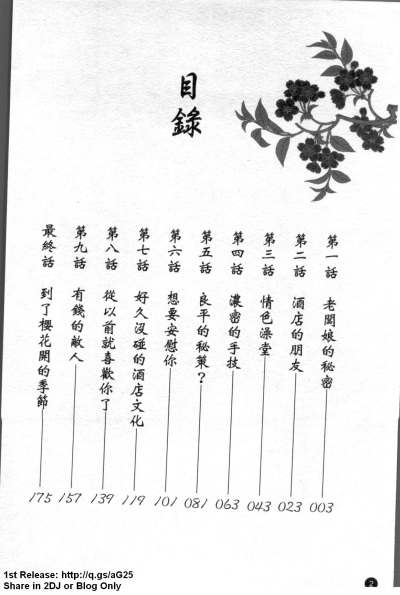 目錄
第一話 老闆娘的秘密 003
第二話 酒店的朋友 023
第三話 情色澡堂 043
第四話 濃密的手技 063
第五話 良平的秘策？ 081
第六話 想要安慰你 101
第七話 好久沒碰的酒店文化 119
第八話 從以前就喜歡你了 139
第九話 有錢的敵人 157
最終話 到了櫻花開的季節 175
2
1st Release: http://q.gs/aG25
Share in 2DJ or Blog Only